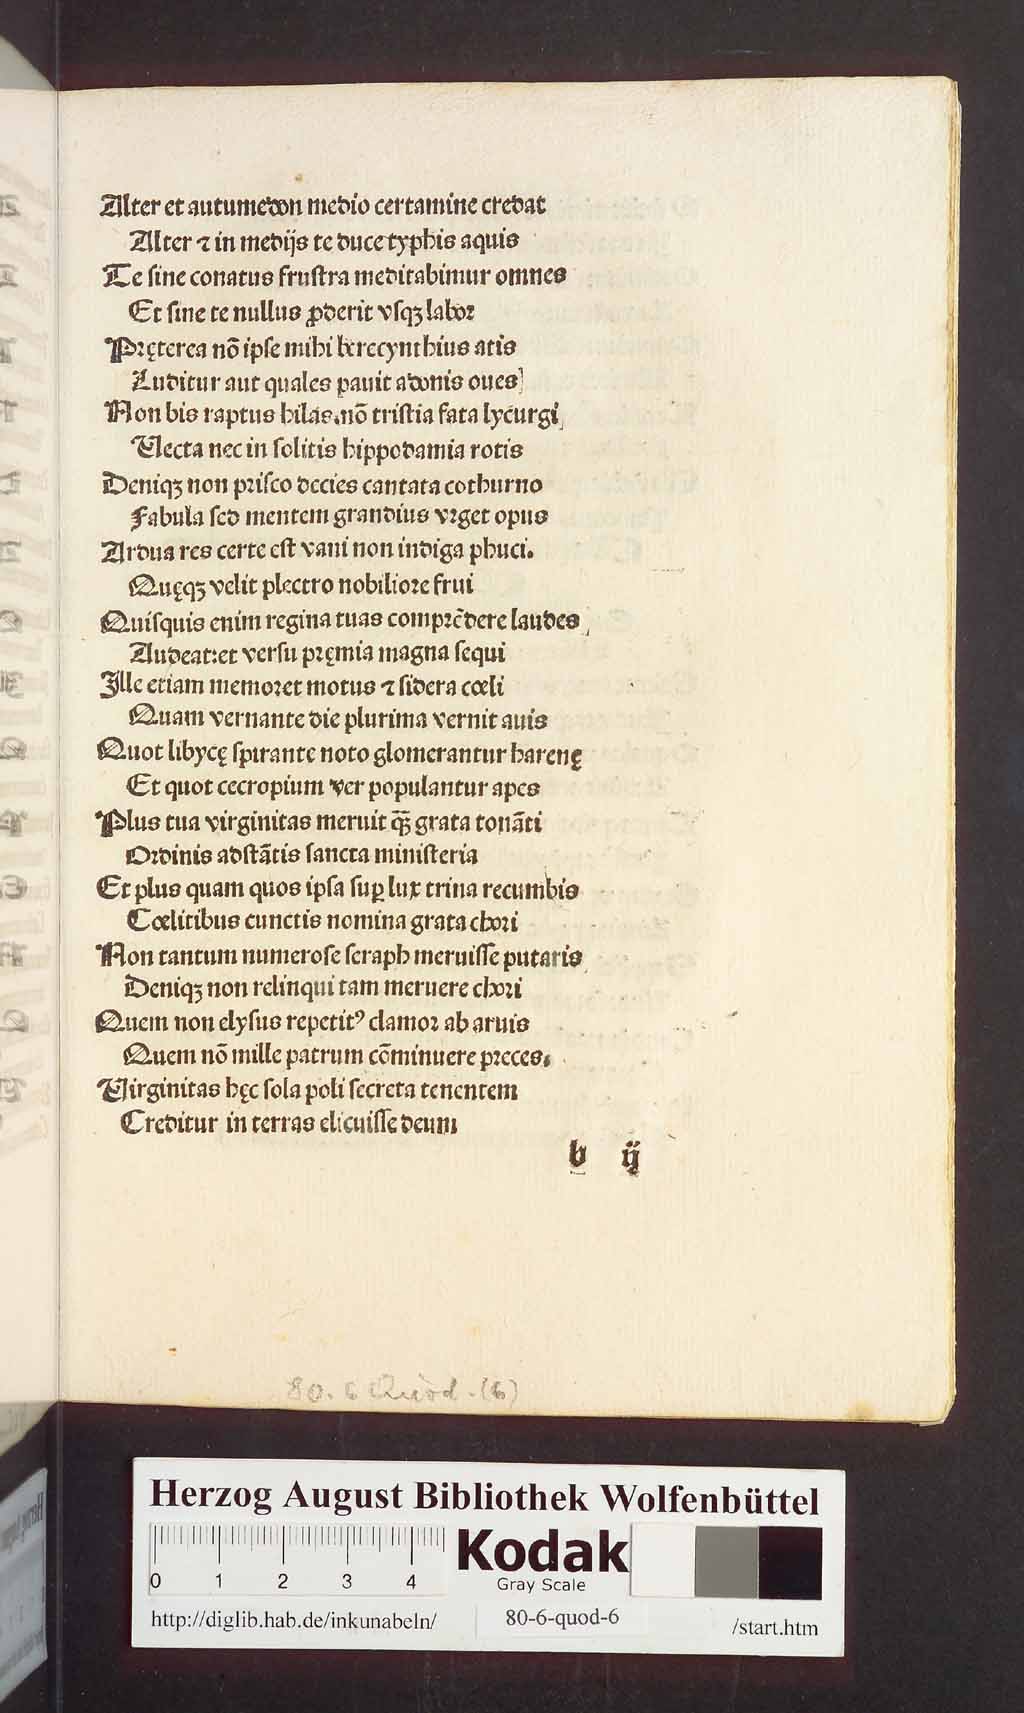 Alter et autumedon medio certamine credat
Alter ⁊ in medijs te duce typhis aquis
Te sine conatus frustra meditabimur omnes
Et sine te nullus ꝓderit vsqꝫ labor
Pręterea nō ipse mihi berecynthius atis
Luditur aut quales pauit adonis oues
Non bis raptus hilas, nō tristia fata lycurgi
Vecta nec in solitis hippodamia rotis
Deniqꝫ non prisco decies cantata cothurno
Fabula sed mentem grandius vrget opus
Ardua res certe est vani non indiga phuci.
Quęqꝫ velit plectro nobiliore frui
Quisquis enim regina tuas comprēdere laudes
Audeat: et versu pręmia magna sequi
Ille etiam memoret motus ⁊ sidera cœli
Quam vernante die plurima vernit auis
Quot libycę spirante noto glomerantur harenę
Et quot cecropium ver populantur apes
Plus tua virginitas meruit q̄ꝫ grata tonāti
Ordinis adstātis sancta ministeria
Et plus quam quos ipsa suꝑ lux trina recumbis
Cœlitibus cunctis nomina grata chori
Non tantum numerose seraph meruisse putaris
Deniqꝫ non relinqui tam meruere chori
Quem non elysus repetitꝰ clamor ab aruis
Quem nō mille patrum cōminuere preces.
Virginitas hęc sola poli secreta tenentem
Creditur in terras elicuisse deum
b ij
80. 6 Quod. (6)
Herzog August Bibliothek Wolfenbüttel
0 1 2 3 4
Kodak
Gray Scale
http://diglib.hab.de/inkunabeln/ 80-6-quod-6 /start.htm